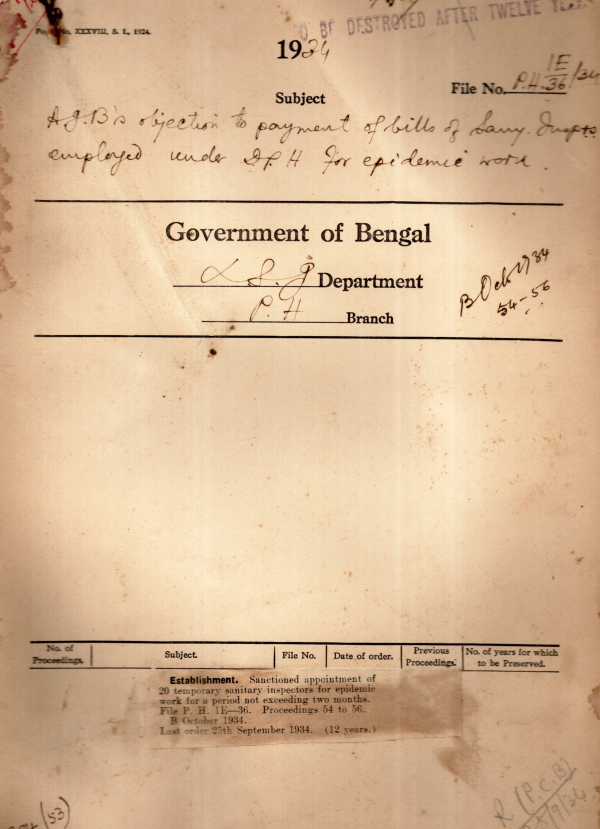 No. XXXVIII, S. I., 1924.
BE DESTROYED AFTER TWELVE YEARS
1934
File No. P.H. 1E/36/34
Subject
A.G.B's objection to payment of bills of Sany. Insptrs
employed under DPH for epidemic work.
Government of Bengal
L S. G Department
P. H Branch
B Oct 1934
54-56
No. of Proceedings. Subject. File No. Date of order. Previous Proceedings. No. of years for which to be Preserved.
Establishment. Sanctioned appointment of
20 temporary sanitary inspectors for epidemic
work for a period not exceeding two months.
File P. H. 1E—36. Proceedings 54 to 56.
B October 1934.
Last order 25th September 1934. (12 years.)
R (P.C.B)
(53)